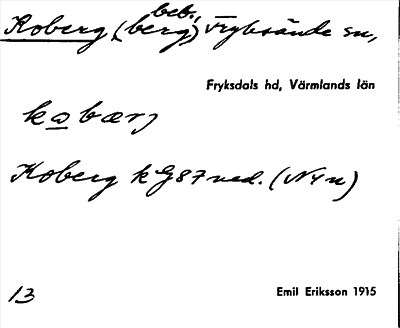 Koberg (berg) beb., Fryksände sn,
Fryksdals hd, Värmlands län
kabærj
Koberg k G87 ned. (N4n)
13
Emil Eriksson 1915